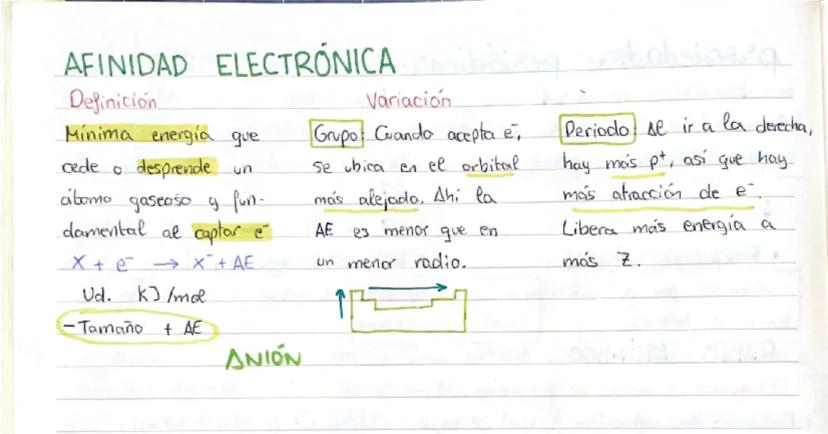 AFINIDAD ELECTRÓNICA
Definición
Mínima energía que
cede o desprende un
átomo gaseoso y fun-
damental al captar e⁻
X + e⁻ → X⁻ + AE
Ud. KJ/mol
- Tamaño + AE
Variación
Grupo: Cuando acepta e⁻,
se ubica en el orbital
más alejado. Ahí la
AE es menor que en
un menor radio.
Periodo: Al ir a la derecha,
hay más p⁺, así que hay
más atracción de e⁻.
Libera más energía a
más Z.
ANIÓN